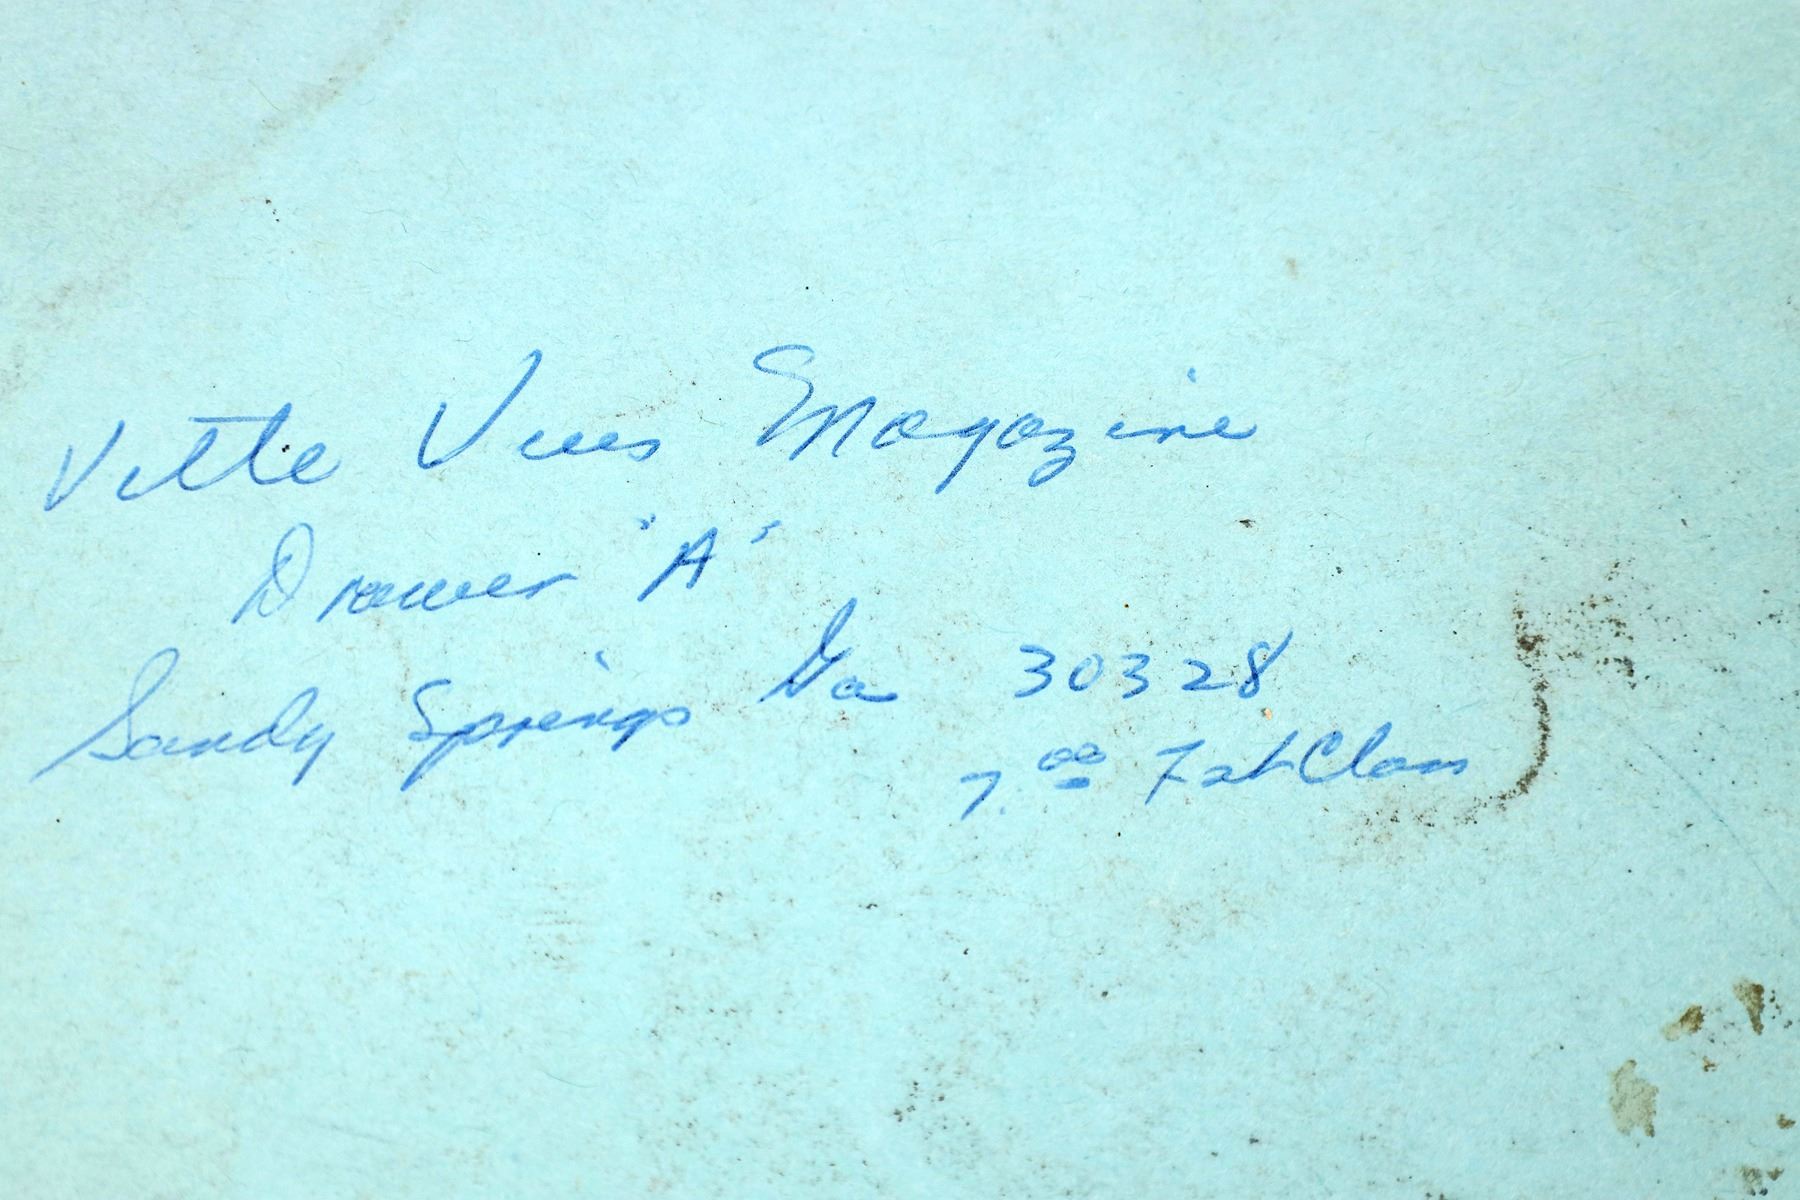 Vette Vues Magazine
Drawer "A"
Sandy Springs Ga 30328
7.00 1st Class